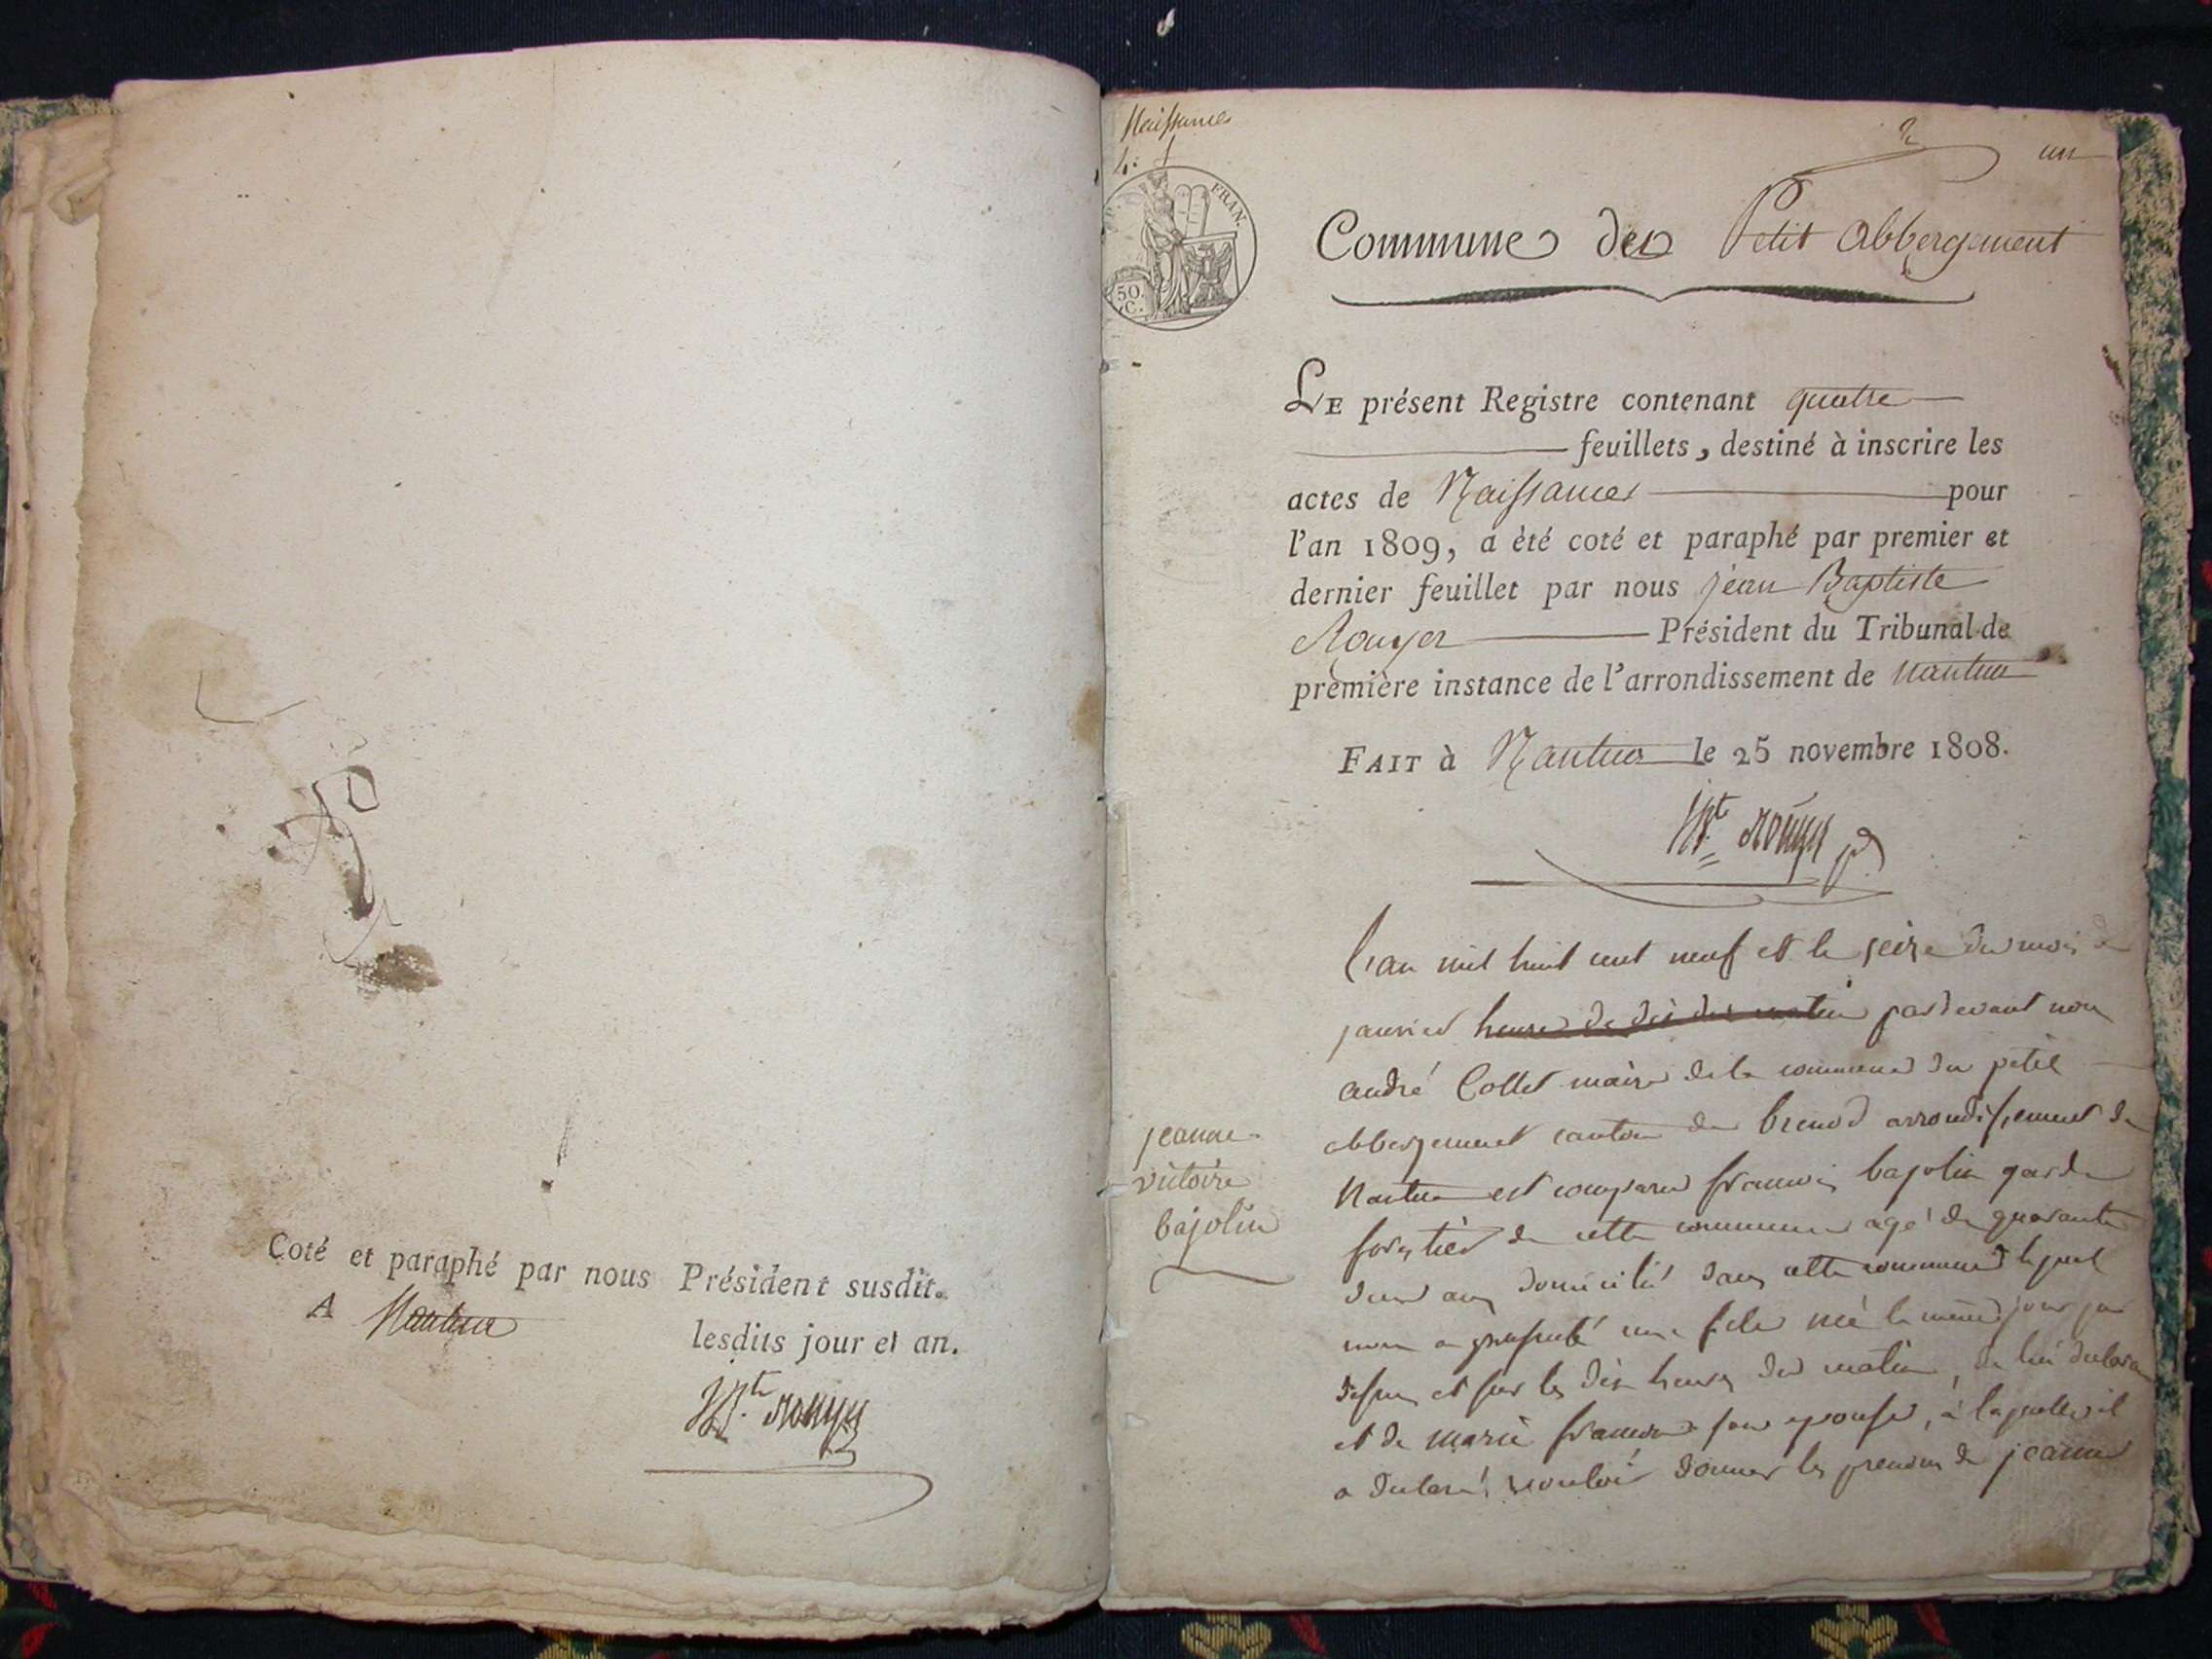 Coté et paraphé par nous Président susdit.
A Nantua
lesdits jour et an.
Bte. Rouyer
Naissances
un
FRAN.
50.
C.
Commune de Petit Abbergement
LE présent Registre contenant quatre
feuillets, destiné à inscrire les
actes de Naissances pour
l'an 1809, a èté coté et paraphé par premier et
dernier feuillet par nous jean Baptiste
Rouyer Président du Tribunal de
première instance de l'arrondissement de nantua
FAIT à Nantua le 25 novembre 1808.
Bte. Rouyer
jeanne
victoire
bajolin
L'an mil huit cent neuf et le seize du mois de
janvier heures de dix du matin pardevant nous
andré Collet maire de la commune du petit
abbergement canton de brenod arrondissement de
Nantua est comparu francois bajolin garde
forestier de cette commune agé de quarante
deux ans domicilié dans cette commune lequel
nous a presenté une fille née le même jour que
dessus et sur les dix heures du matin, de lui declarant
et de marie francoise son epouse, à laquelle il
a declaré vouloir donner les prenoms de jeanne